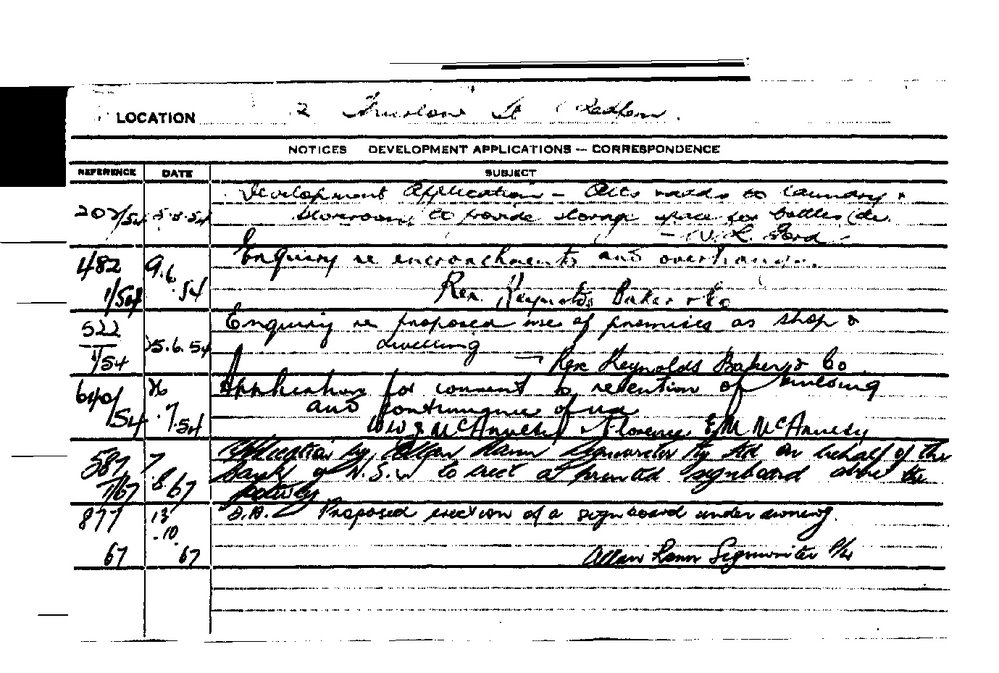 LOCATION 2 St Redfern.
NOTICES DEVELOPMENT APPLICATIONS — CORRESPONDENCE
REFERENCE DATE SUBJECT
Development Application — to laundry &
207/54 5.5.54 showroom to provide storage space for bottles etc.
— Ford —
482 9.6 Enquiry re encroachments and overhangs.
1/54 .54 Rex Reynolds Baker & Co
522 Enquiry re proposed use of premises as shop &
1/54 5.6.54 dwelling — Rex Reynolds Baker & Co.
640/ 26 Application for consent to retention of building
54 .7.54 and continuance of use
McAnulty & Florence E.M. McAnulty
587 7 Application by Allan Signwriter Pty Ltd on behalf of the
7/67 .8.67 bank of N.S.W to erect a printed signboard above the
877 13 D.A. Proposed erection of a signboard under awning.
.10.
67 67 Allan Signwriter P/L